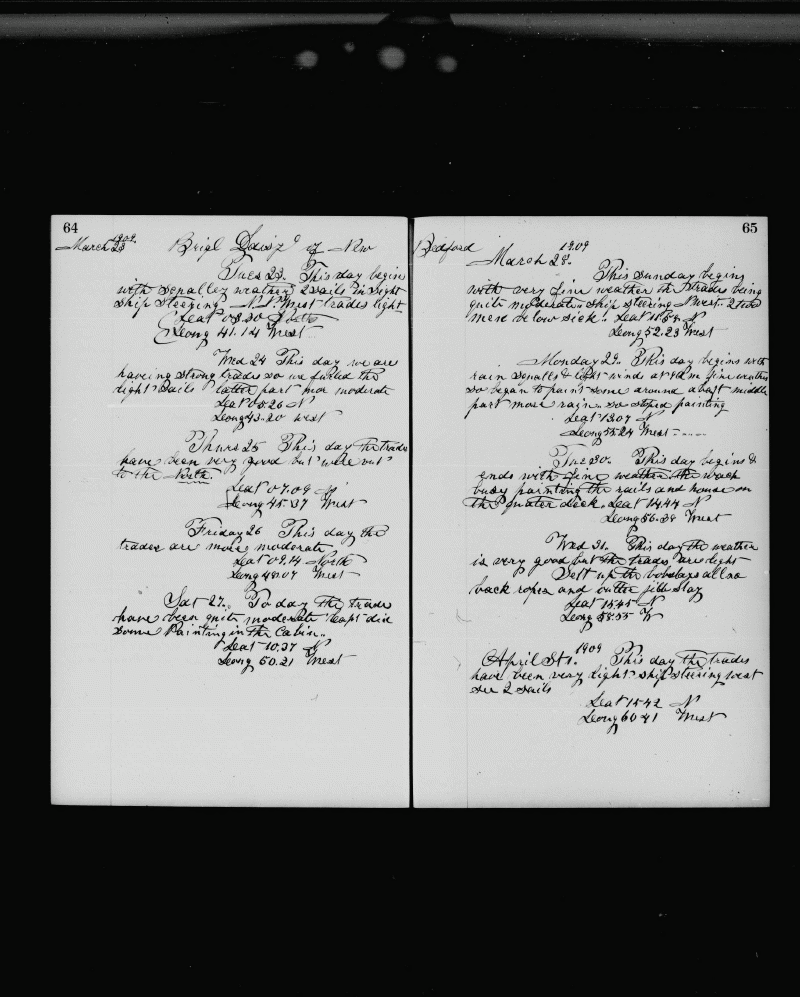 64
March 23 1909. Brigl Daisy of New
Tues 23. This day begin
with squalley weather 2 sails in sight
ship steeping N.N. West trades light
Leat 03.30 North
Leong 41.14 West
Wed 24 This day we are
haveing strong trades so we furled the
light sails latter part mor moderate
Leat 05.26 N
Leong 43.20 West
Thurs 25 This day the trades
have been very good but
to the North.
Leat 07.09 N
Leong 45.37 West
Friday 26 This day the
trades are more moderate
Leat 09.14 North
Leong 48.07 West
Sat 27. To day the trade
have been quite moderate Capt did
some Painting in the Cabin..
Leat 10.37 N
Leong 50.21 West
65
Bedford
March 28. 1909
This sunday begins
with very fine weather the trades being
quite moderate. Ship steering N West. 2 two
men below sick. Leat 11.59 N
Leong 52.23 West
Monday 29. This day begins with
rain squalls & light winds at PM fine weather
so began to paint some around abaft middle
part more rain.. so stoped painting
Leat 13.07 N
Leong 55.24 West
Tue 30. This day begins &
ends with fine weather. the wach
busy painting the rails and house on
the quater deck. Leat 14.44 N
Leong 56.39 West
Wed 31. This day the weather
is very good but the trades are light
Sett up the bobstays allso
back ropes and outter jibb stay
Leat 15.45 N
Leong 58.55 W
April St 1. 1909 This day the trades
have been very light. ship steering west
see 2 sails
Leat 15.42 N
Leong 60.41 West